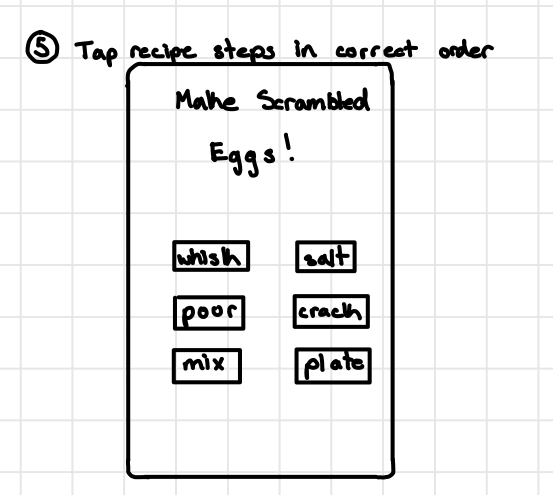 ⑤ Tap recipe steps in correct order
Make Scrambled
Eggs!
whisk salt
poor crack
mix plate